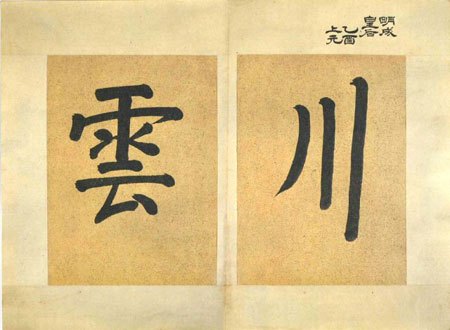 明成
皇后
乙酉
上元
川
雲